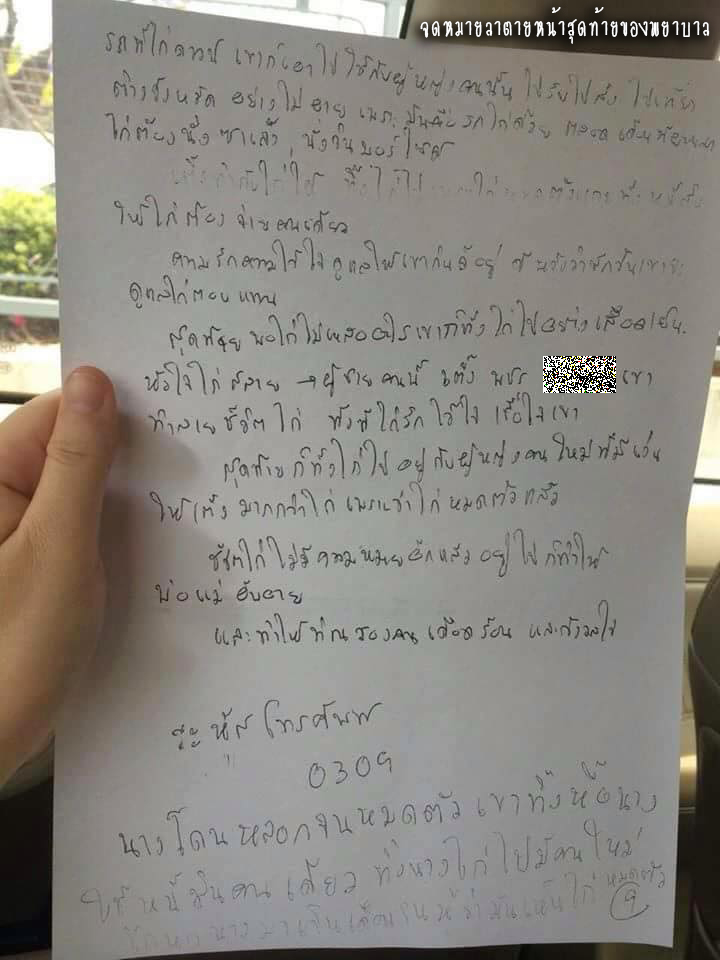 จดหมายลาตายหน้าสุดท้ายของพยาบาล
รถที่ไก่ดาวน์ เขาก็เอาไปใช้กับผู้หญิงคนนั้น ไปรับไปส่ง ไปเที่ยว
ต่างจังหวัด อย่างไม่อาย เพราะมันคือรถไก่ด้วย ตลอด
ไก่ต้องนั่งซาเล้ง, นั่งวินมอร์ไซด์
ให้ไก่ต้องจ่ายคนเดียว
ความรักความใส่ใจดูแลให้เขากินดีอยู่ดี หวังว่าสักวันเขาจะ
ดูแลไก่ตอบแทน
สุดท้ายพอไก่ไม่เหลืออะไรเขาก็ทิ้งไก่ไปอย่างเลือดเย็น
หัวใจไก่สลาย → ผู้ชายคนนี้ เติ้ง พชร เขา
ทำลายชีวิตไก่ ทั้งที่ไก่รัก ใส่ใจ เชื่อใจเขา
สุดท้ายก็ทิ้งไก่ไปอยู่กับผู้หญิงคนใหม่ที่มีเงิน
ให้เติ้งมากกว่าไก่ เพราะว่าไก่หมดตัวแล้ว
ชีวิตไก่ไม่มีความหมายอีกแล้ว อยู่ไปก็ทำให้
พ่อแม่อับอาย
และทำให้ท่านสองคนเดือดร้อน และกังวลใจ
รหัสโทรศัพท์
0309
นางโดนหลอกจนหมดตัว เขาทิ้งหนี้นาง
ใช้หนี้มันคนเดียว ทิ้งนางไก่ไปมีคนใหม่
หมดตัว
9